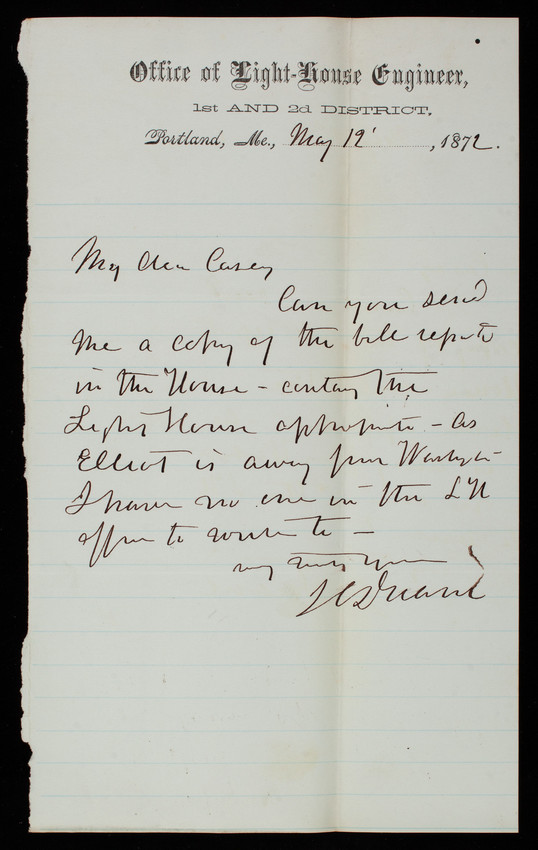 Office of Light-House Engineer,
1st AND 2d DISTRICT,
Portland, Me., May 12, 1872.
My dear Casey
Can you send
me a copy of the bill reported
in the House - containg the
Light House appropriato - as
Elliot is away from Washington
I have no one in the LH
office to write to -
very truly yours
J C Duane